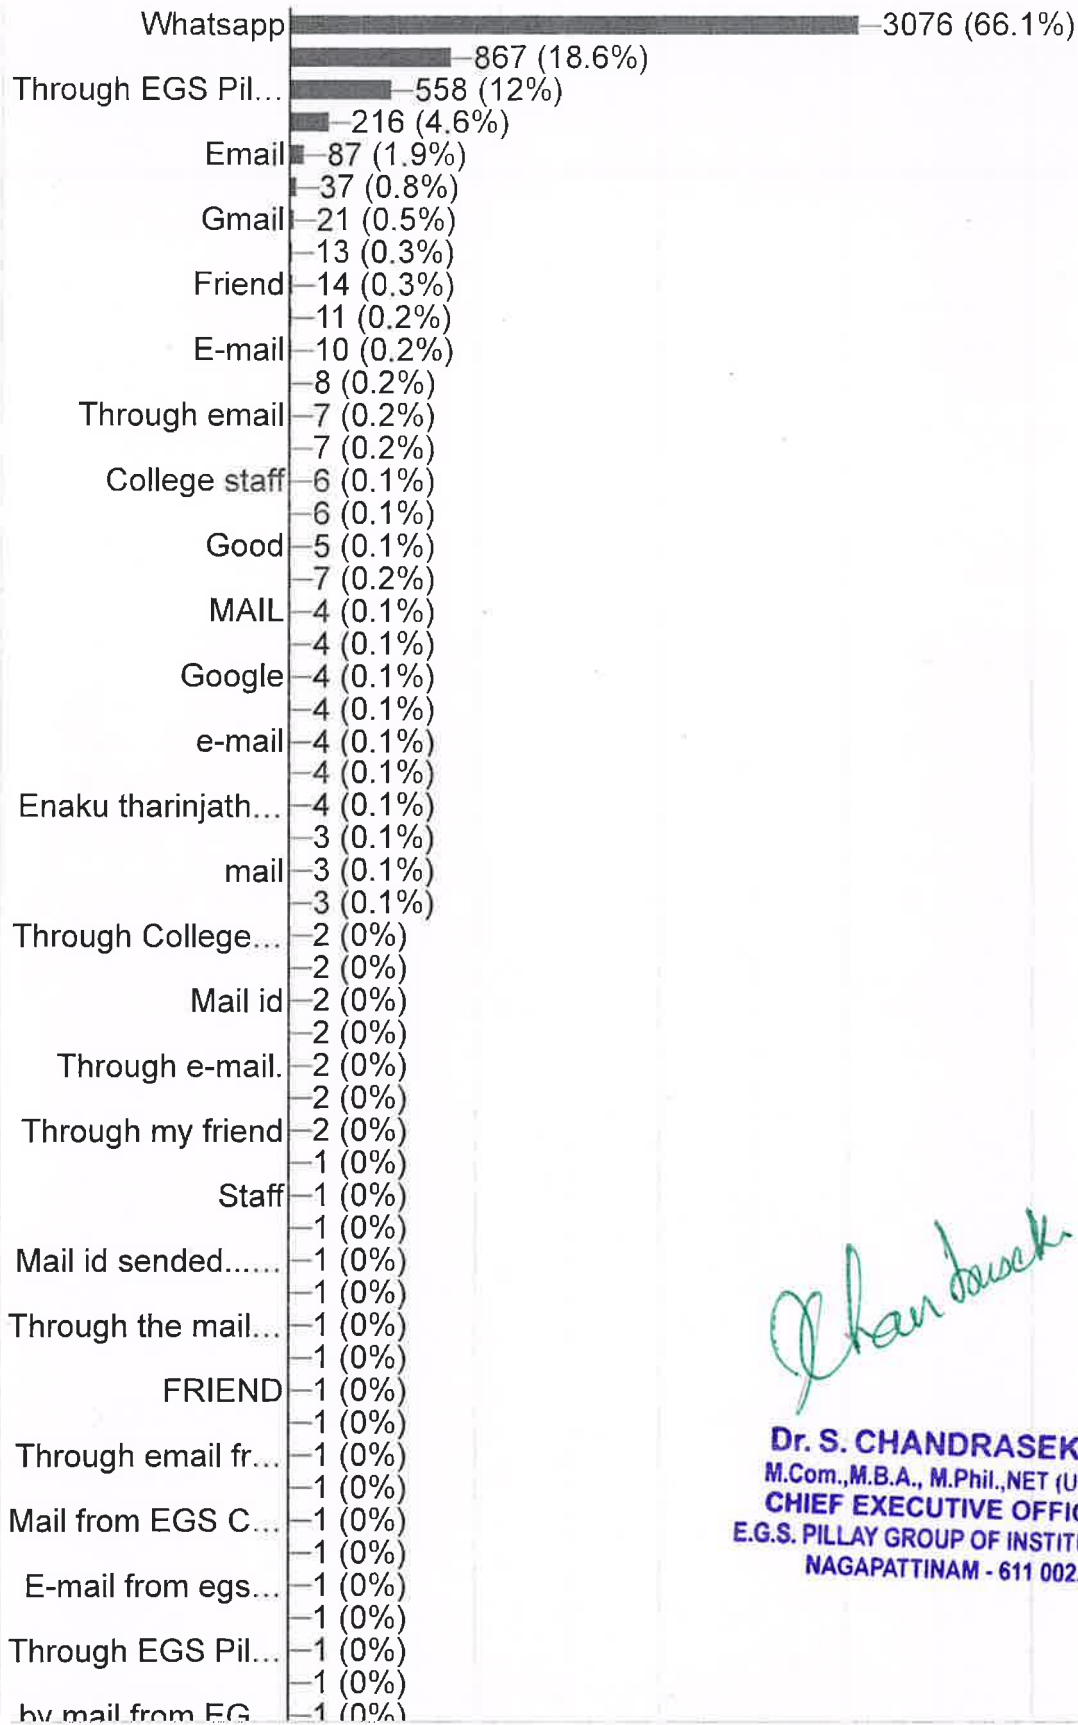 Whatsapp 3076 (66.1%)
867 (18.6%)
Through EGS Pil... 558 (12%)
216 (4.6%)
Email 87 (1.9%)
37 (0.8%)
Gmail 21 (0.5%)
13 (0.3%)
Friend 14 (0.3%)
11 (0.2%)
E-mail 10 (0.2%)
8 (0.2%)
Through email 7 (0.2%)
7 (0.2%)
College staff 6 (0.1%)
6 (0.1%)
Good 5 (0.1%)
7 (0.2%)
MAIL 4 (0.1%)
4 (0.1%)
Google 4 (0.1%)
4 (0.1%)
e-mail 4 (0.1%)
4 (0.1%)
Enaku tharinjath... 4 (0.1%)
3 (0.1%)
mail 3 (0.1%)
3 (0.1%)
Through College... 2 (0%)
2 (0%)
Mail id 2 (0%)
2 (0%)
Through e-mail. 2 (0%)
2 (0%)
Through my friend 2 (0%)
1 (0%)
Staff 1 (0%)
1 (0%)
Mail id sended...... 1 (0%)
1 (0%)
Through the mail... 1 (0%)
1 (0%)
FRIEND 1 (0%)
1 (0%)
Through email fr... 1 (0%)
1 (0%)
Mail from EGS C... 1 (0%)
1 (0%)
E-mail from egs... 1 (0%)
1 (0%)
Through EGS Pil... 1 (0%)
1 (0%)
by mail from EG 1 (0%)
Dr. S. CHANDRASEK
M.Com.,M.B.A., M.Phil.,NET (U
CHIEF EXECUTIVE OFFIC
E.G.S. PILLAY GROUP OF INSTIT
NAGAPATTINAM - 611 002.